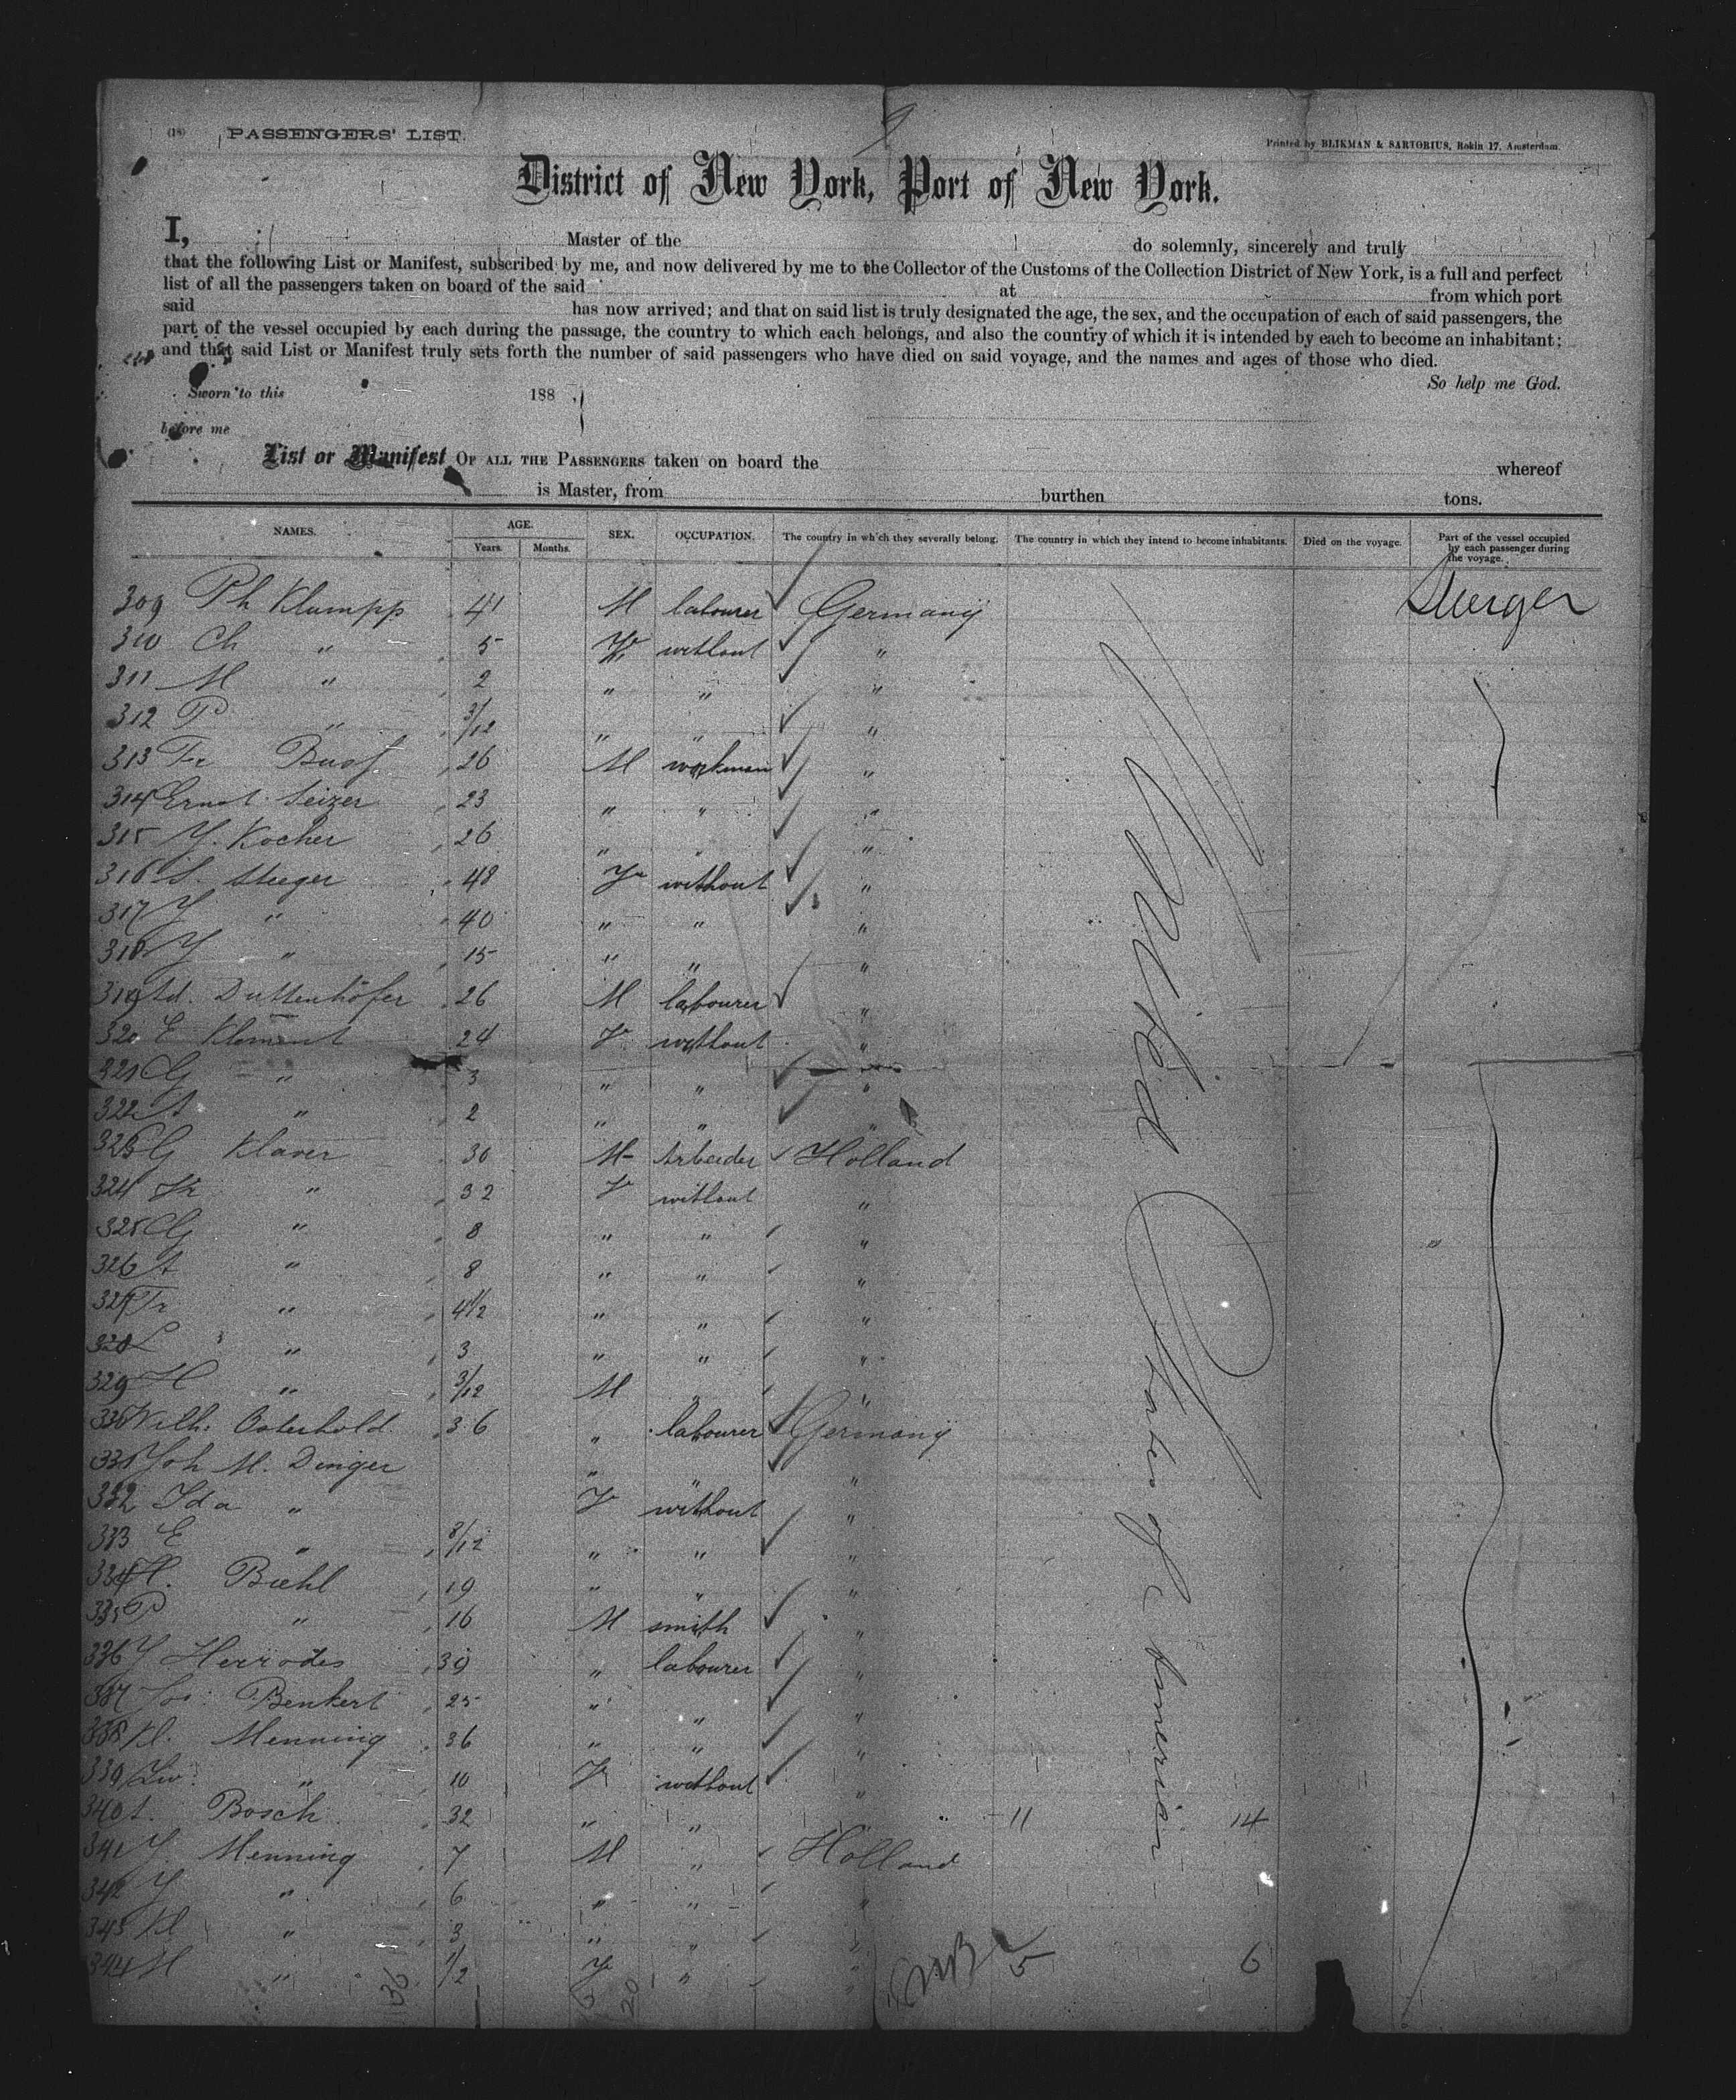 (18) PASSENGERS' LIST.
Printed by BLIKMAN & SARTORIUS, Rokin 17, Amsterdam.
District of New York, Port of New York.
I, Master of the do solemnly, sincerely and truly
that the following List or Manifest, subscribed by me, and now delivered by me to the Collector of the Customs of the Collection District of New York, is a full and perfect
list of all the passengers taken on board of the said at from which port
said has now arrived; and that on said list is truly designated the age, the sex, and the occupation of each of said passengers, the
part of the vessel occupied by each during the passage, the country to which each belongs, and also the country of which it is intended by each to become an inhabitant;
and that said List or Manifest truly sets forth the number of said passengers who have died on said voyage, and the names and ages of those who died.
So help me God.
Sworn to this 188
before me
List or Manifest OF ALL THE PASSENGERS taken on board the whereof
is Master, from burthen tons.
NAMES. AGE. SEX. OCCUPATION. The country in which they severally belong. The country in which they intend to become inhabitants. Died on the voyage. Part of the vessel occupied by each passenger during the voyage.
Years. Months.
309 Ph Klumpp 41 M labourer Germany
310 Ch " 5 without "
311 M " 2 " " "
312 P " 3/12 " " "
313 Fr Buof 26 M workman "
314 Ernst Seizer 23 " " "
315 Y. Kocher 26 " " "
316 S. Steeger 48 without "
317 Y " 40 " " "
318 Y " 15 " " "
319 Ad. Duttenhöfer 26 M labourer "
320 E Klement 24 V without "
321 G " 3 " " "
322 A " 2 " " "
323 G Klaver 30 M Arbeider Holland
324 Fr " 32 V without "
325 G " 8 " " "
326 A " 8 " " "
327 Tr " 4 1/2 " " "
328 L " 3 " " "
329 H " 3/12 M " "
330 Wilh. Osterhold 36 " labourer Germany
331 Joh M. Dinger " " "
332 Ida " V without "
333 E " 8/12 " " "
334 H. Biehl 19 " " "
335 P " 16 M smith "
336 Y Herrodes 39 " labourer "
337 Jos. Benkert 25 " " "
338 Kl. Menning 36 " " "
339 Zw. " 10 V without "
340 A. Bosch 32 " " " 11 14
341 Y. Menning 7 M " Holland
342 Y " 6 " " "
343 Kl " 3 " " "
344 M " 1/2 V " " 5 6
United States of America
136
20